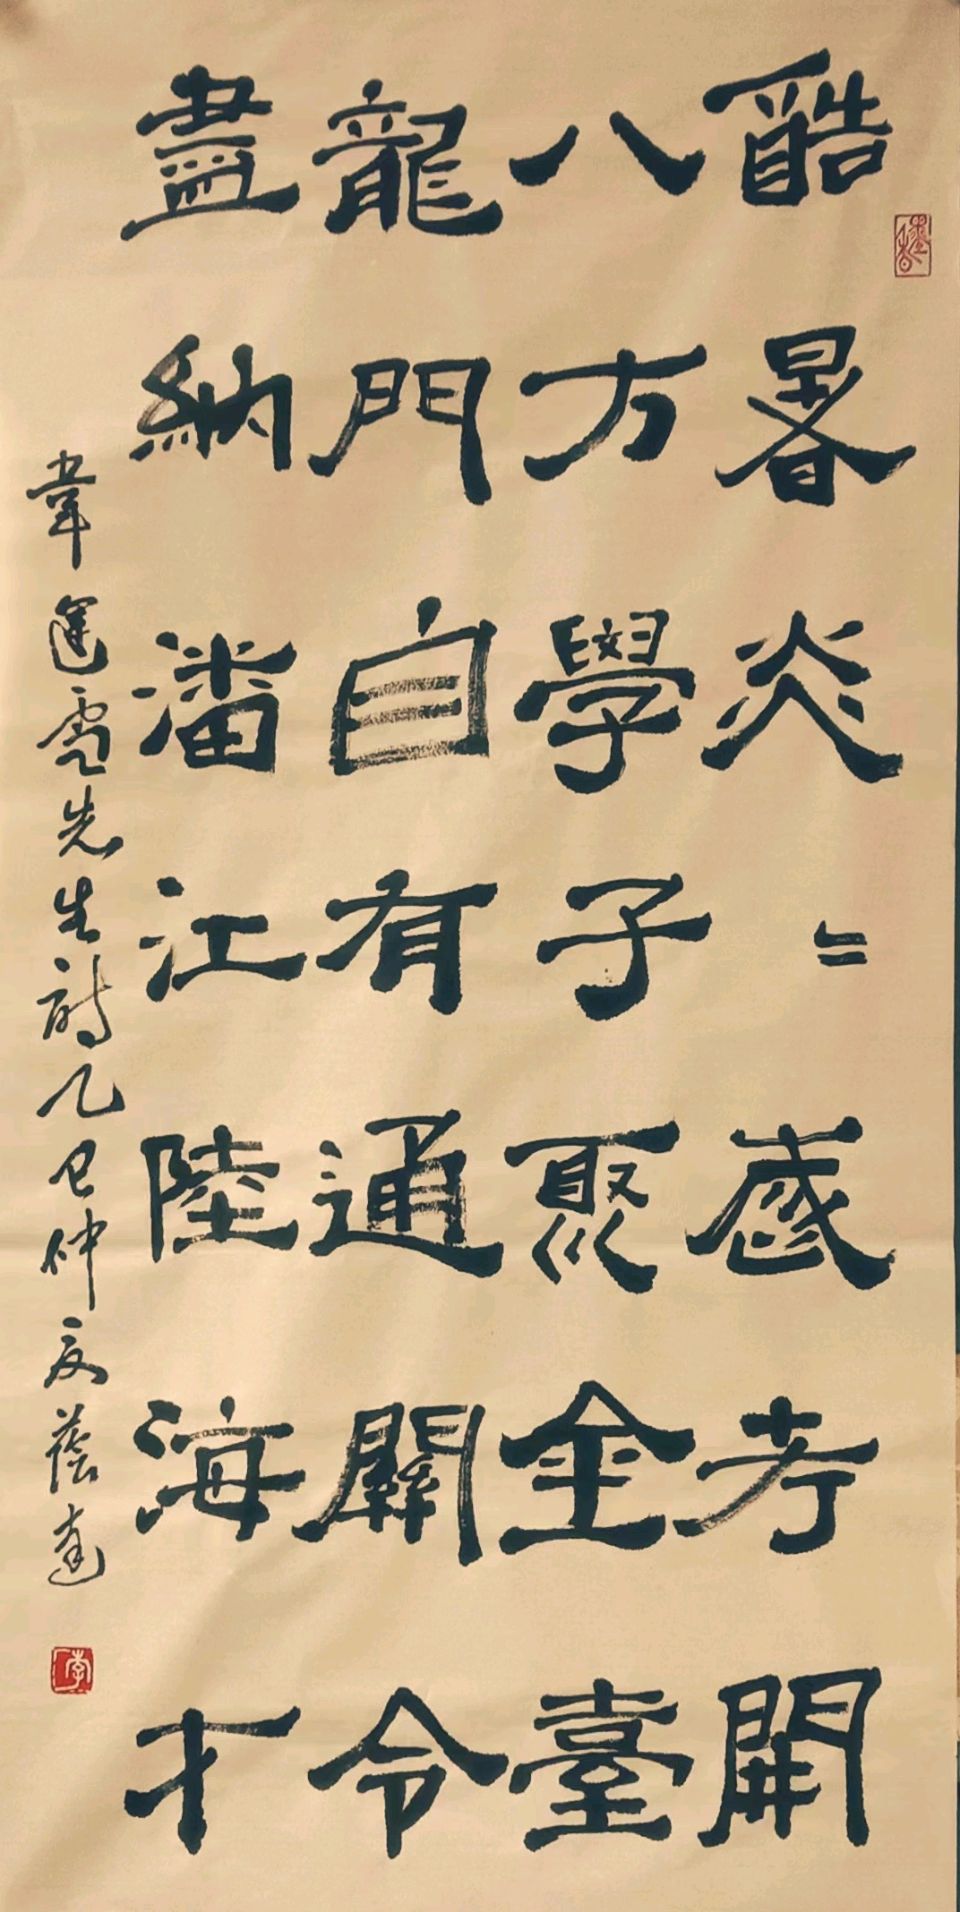 酷暑炎〻盛考開
八方學子聚金臺
龍門自有通關令
盡納潘江陸海才
韋運虚先生詩乙巳仲夏蔭達